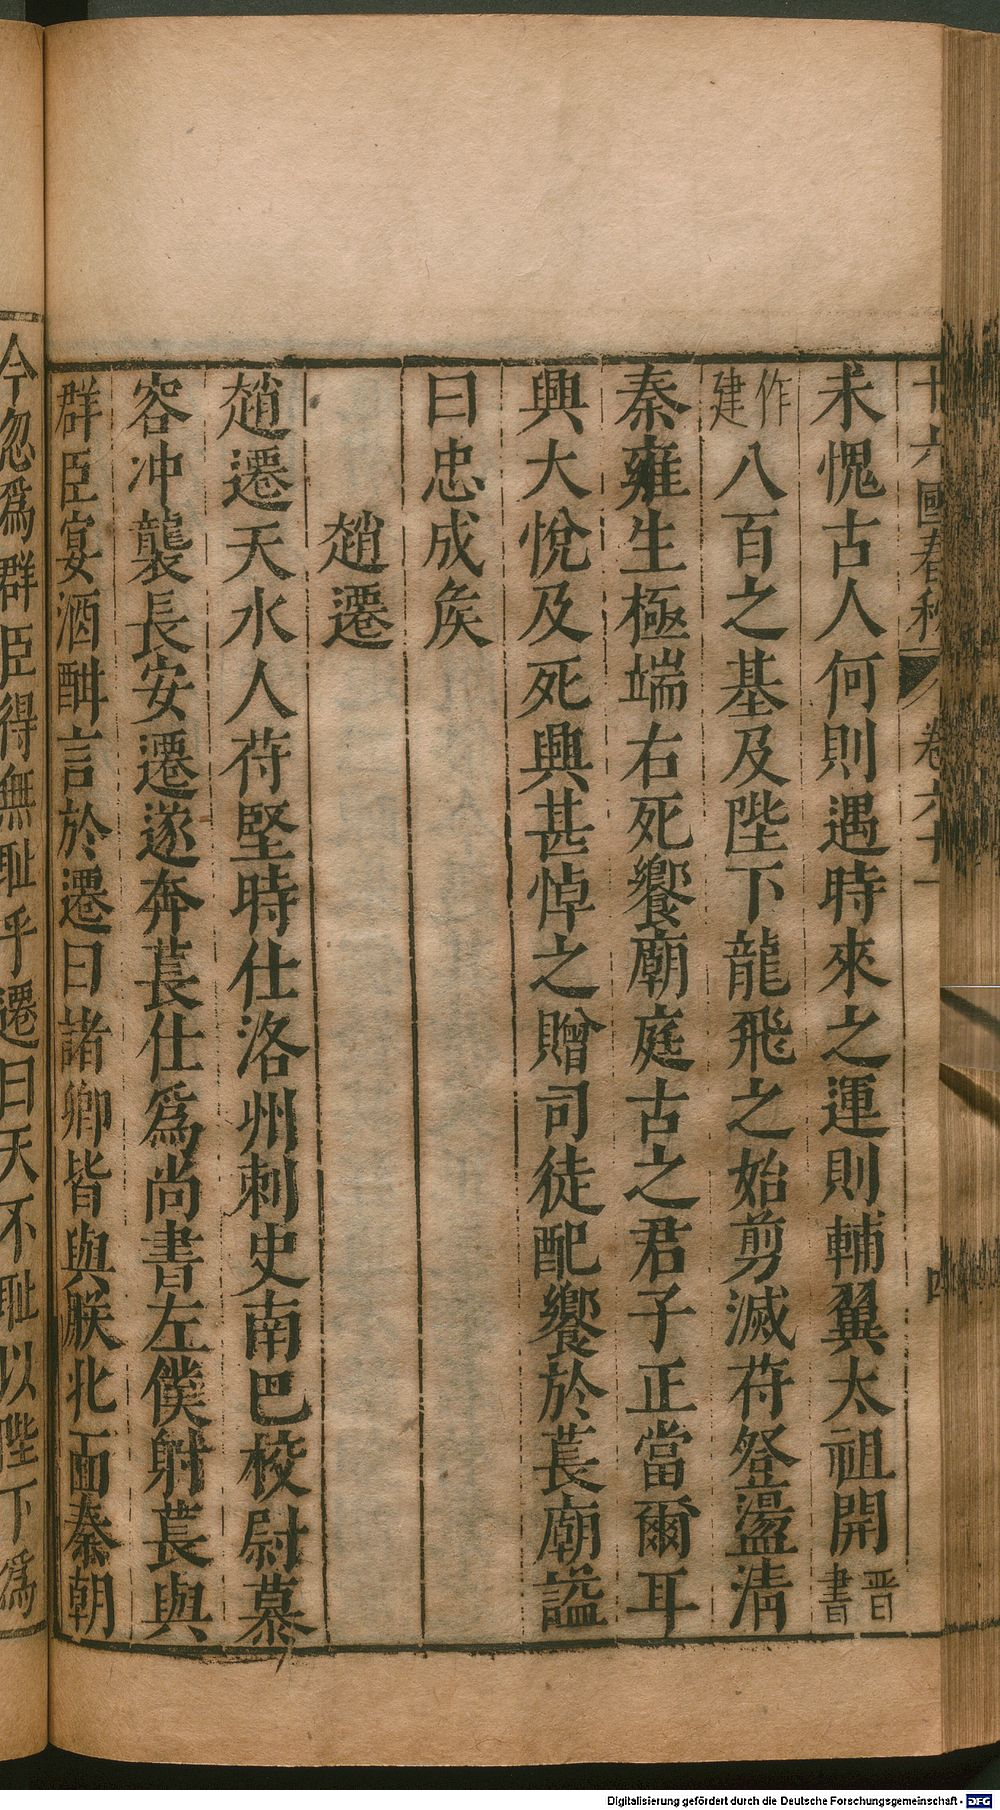 十六國春秋 卷六十一 四
未愧古人何則遇時來之運則輔翼太祖開晉書
作建八百之基及陛下龍飛之始剪滅苻登盪清
秦雍生極端右死饗廟庭古之君子正當爾耳
興大悅及死興甚悼之贈司徒配饗於萇廟諡
曰忠成矦
趙遷
趙遷天水人苻堅時仕洛州刺史南巴校尉慕
容冲襲長安遷遂奔萇仕爲尚書左僕射萇與
群臣宴酒酣言於遷曰諸卿皆與朕北面秦朝
今忽爲群臣得無耻乎遷曰天不耻以陛下爲
Digitalisierung gefördert durch die Deutsche Forschungsgemeinschaft - DFG